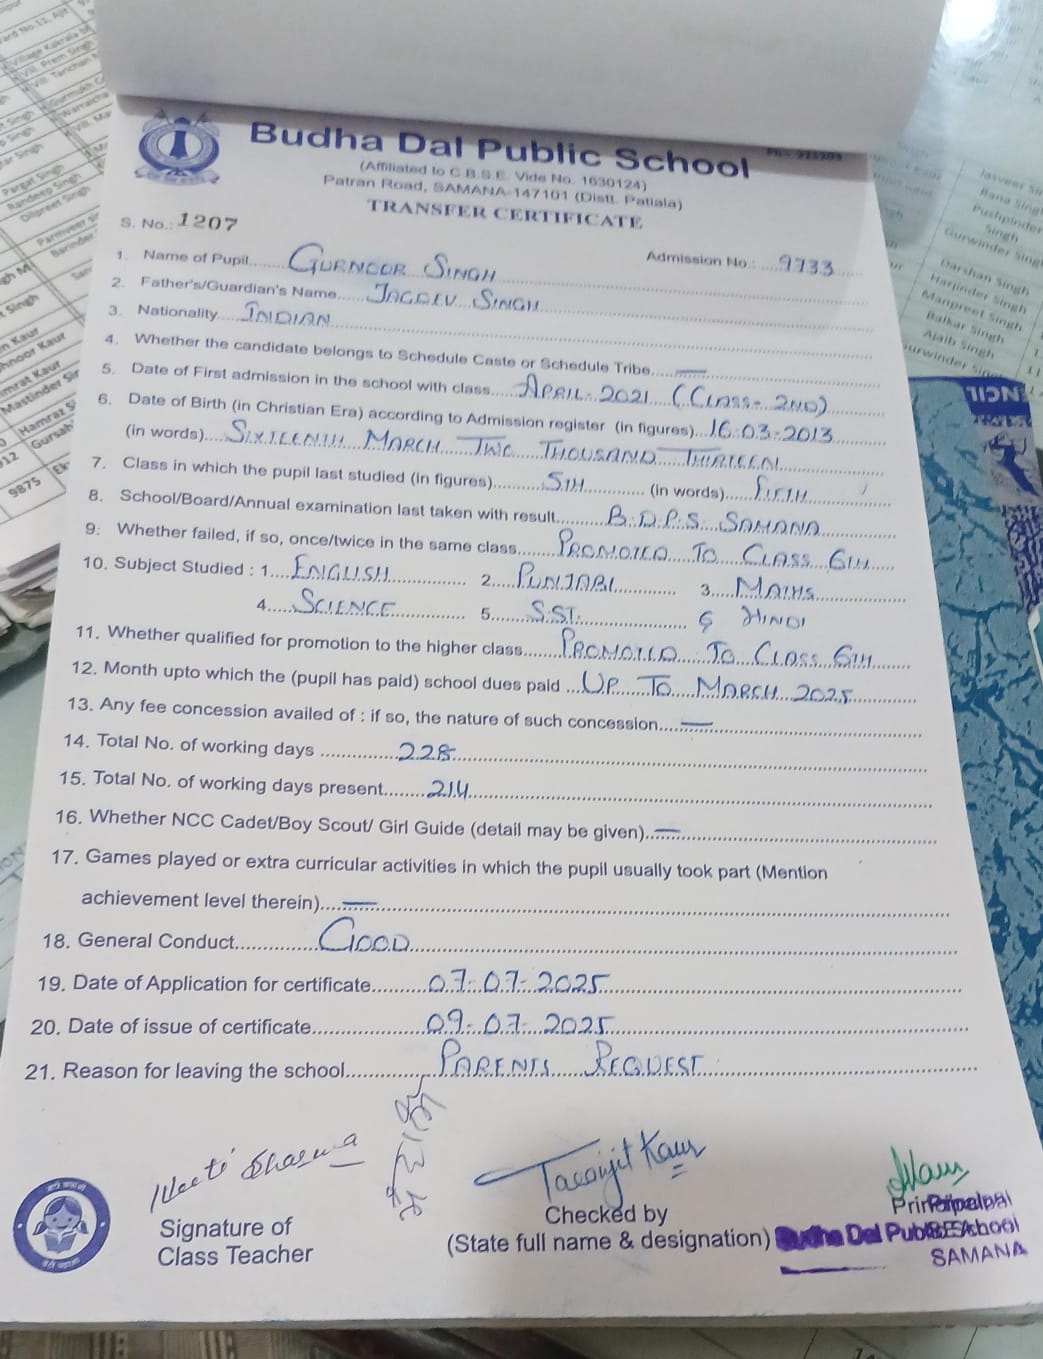 Budha Dal Public School
(Affiliated to C.B.S.E. Vide No. 1630124)
Patran Road, SAMANA-147101 (Distt. Patiala)
TRANSFER CERTIFICATE
S. No.: 1207
Admission No.: 9733
1. Name of Pupil GURNOOR SINGH
2. Father's/Guardian's Name JAGDEV SINGH
3. Nationality INDIAN
4. Whether the candidate belongs to Schedule Caste or Schedule Tribe —
5. Date of First admission in the school with class APRIL-2021 (CLASS-2ND)
6. Date of Birth (in Christian Era) according to Admission register (in figures) 16-03-2013
(in words) SIXTEENTH MARCH TWO THOUSAND THIRTEEN
7. Class in which the pupil last studied (in figures) 5TH (in words) FIFTH
8. School/Board/Annual examination last taken with result B.D.P.S. SAMANA
9. Whether failed, if so, once/twice in the same class PROMOTED TO CLASS 6TH
10. Subject Studied : 1. ENGLISH 2. PUNJABI 3. MATHS
4. SCIENCE 5. S.ST. & HINDI
11. Whether qualified for promotion to the higher class PROMOTED TO CLASS 6TH
12. Month upto which the (pupil has paid) school dues paid UP TO MARCH 2025
13. Any fee concession availed of : if so, the nature of such concession —
14. Total No. of working days 228
15. Total No. of working days present 214
16. Whether NCC Cadet/Boy Scout/ Girl Guide (detail may be given) —
17. Games played or extra curricular activities in which the pupil usually took part (Mention
achievement level therein) —
18. General Conduct GOOD
19. Date of Application for certificate 07-07-2025
20. Date of issue of certificate 09-07-2025
21. Reason for leaving the school PARENTS REQUEST
Neeti Sharma
Kaur
Signature of
Class Teacher
Checked by
(State full name & designation)
Principal
Budha Dal Public School
SAMANA